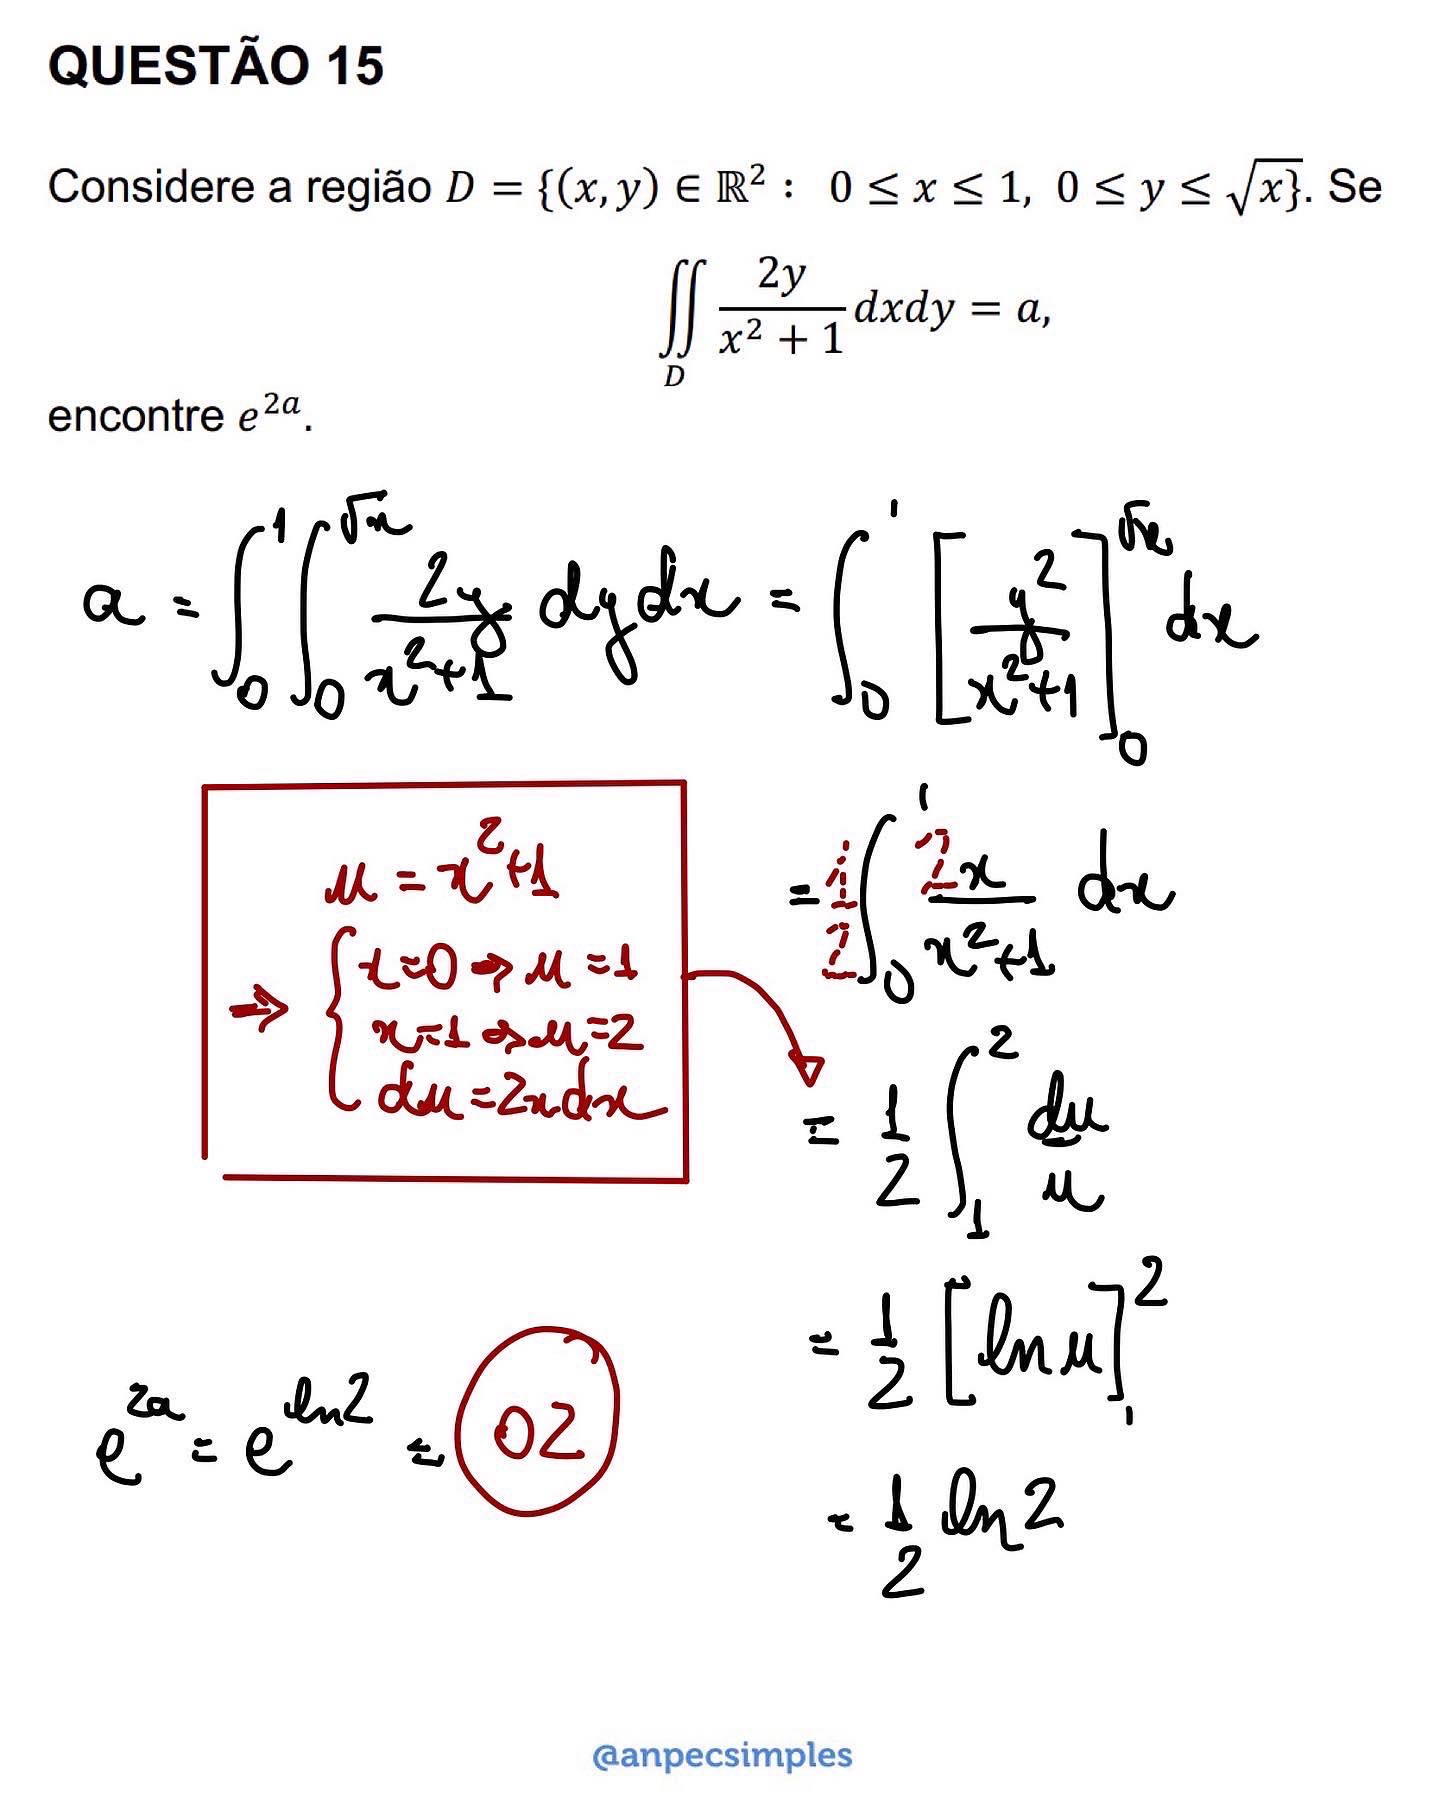 QUESTÃO 15
Considere a região D = {(x, y) ∈ ℝ² : 0 ≤ x ≤ 1, 0 ≤ y ≤ √x}. Se
∬_D 2y/(x² + 1) dxdy = a,
encontre e^{2a}.
a = ∫₀¹ ∫₀^{√x} 2y/(x²+1) dy dx = ∫₀¹ [y²/(x²+1)]₀^{√x} dx
= 1/2 ∫₀¹ 2x/(x²+1) dx
u = x²+1
⇒ { x=0 ⇒ u=1
x=1 ⇒ u=2
du=2xdx
= 1/2 ∫₁² du/u
= 1/2 [ln u]₁²
= 1/2 ln 2
e^{2a} = e^{ln 2} = 02
@anpecsimples